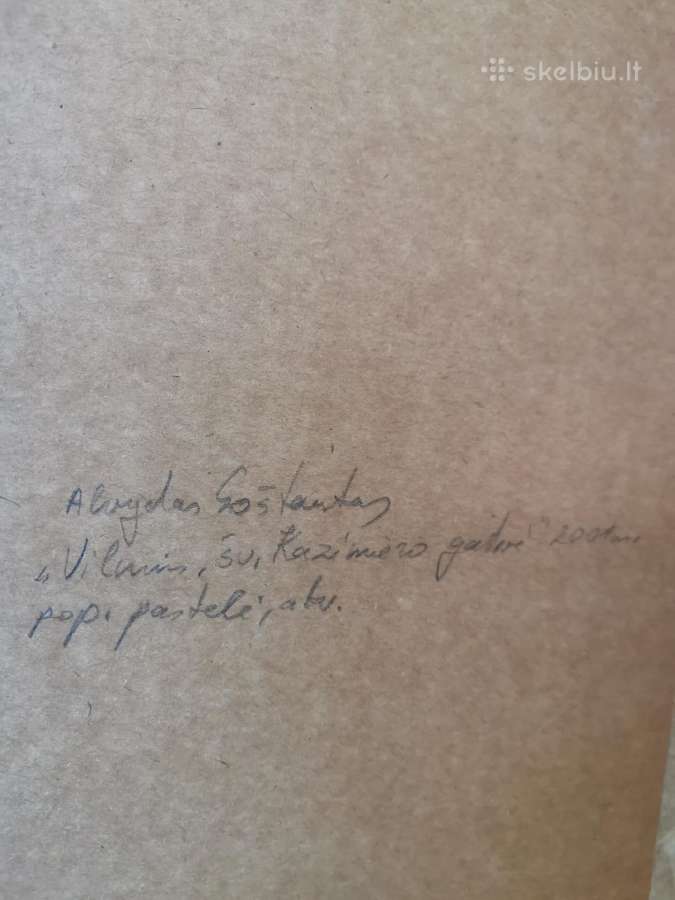 skelbiu.lt
Alvydas Goštautas
„Vilnius, šv. Kazimiero gatvė" 2001 m.
pop. pastelė, atv.